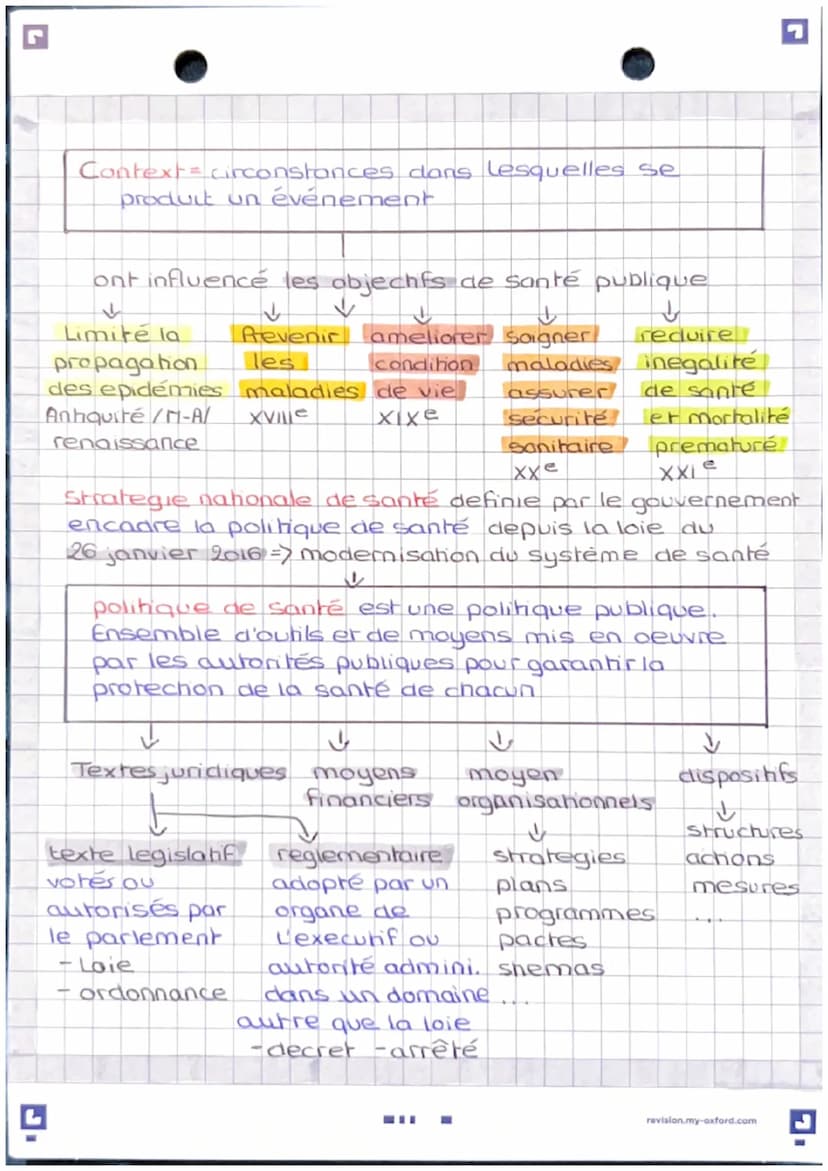 Context = circonstances dans lesquelles se
produit un événement
ont influencé les objectifs de santé publique
Limité la
propagation
des epidémies
Antiquité / M-A/
renaissance
Prevenir
les
maladies
XVIIIe
ameliorer
condition
de vie
XIXe
soigner
maladies
assurer
sécurité
sanitaire
XXe
reduire
inegalité
de santé
et mortalité
prematuré
XXIe
Strategie nationale de santé definie par le gouvernement
encadre la politique de santé depuis la loie du
26 janvier 2016 => modernisation du système de santé
politique de santé est une politique publique.
Ensemble d'outils et de moyens mis en oeuvre
par les autorités publiques pour garantir la
protection de la santé de chacun
Textes juridiques
moyens
financiers
moyen
organisationnels
dispositifs
texte legislatif
votés ou
autorisés par
le parlement
- Loie
- ordonnance
reglementaire
adopté par un
organe de
l'executif ou
autorité admini.
dans un domaine
autre que la loie
-decret -arrêté
strategies
plans
programmes
pactes
shemas
...
structures
actions
mesures
...
revision.my-oxford.com